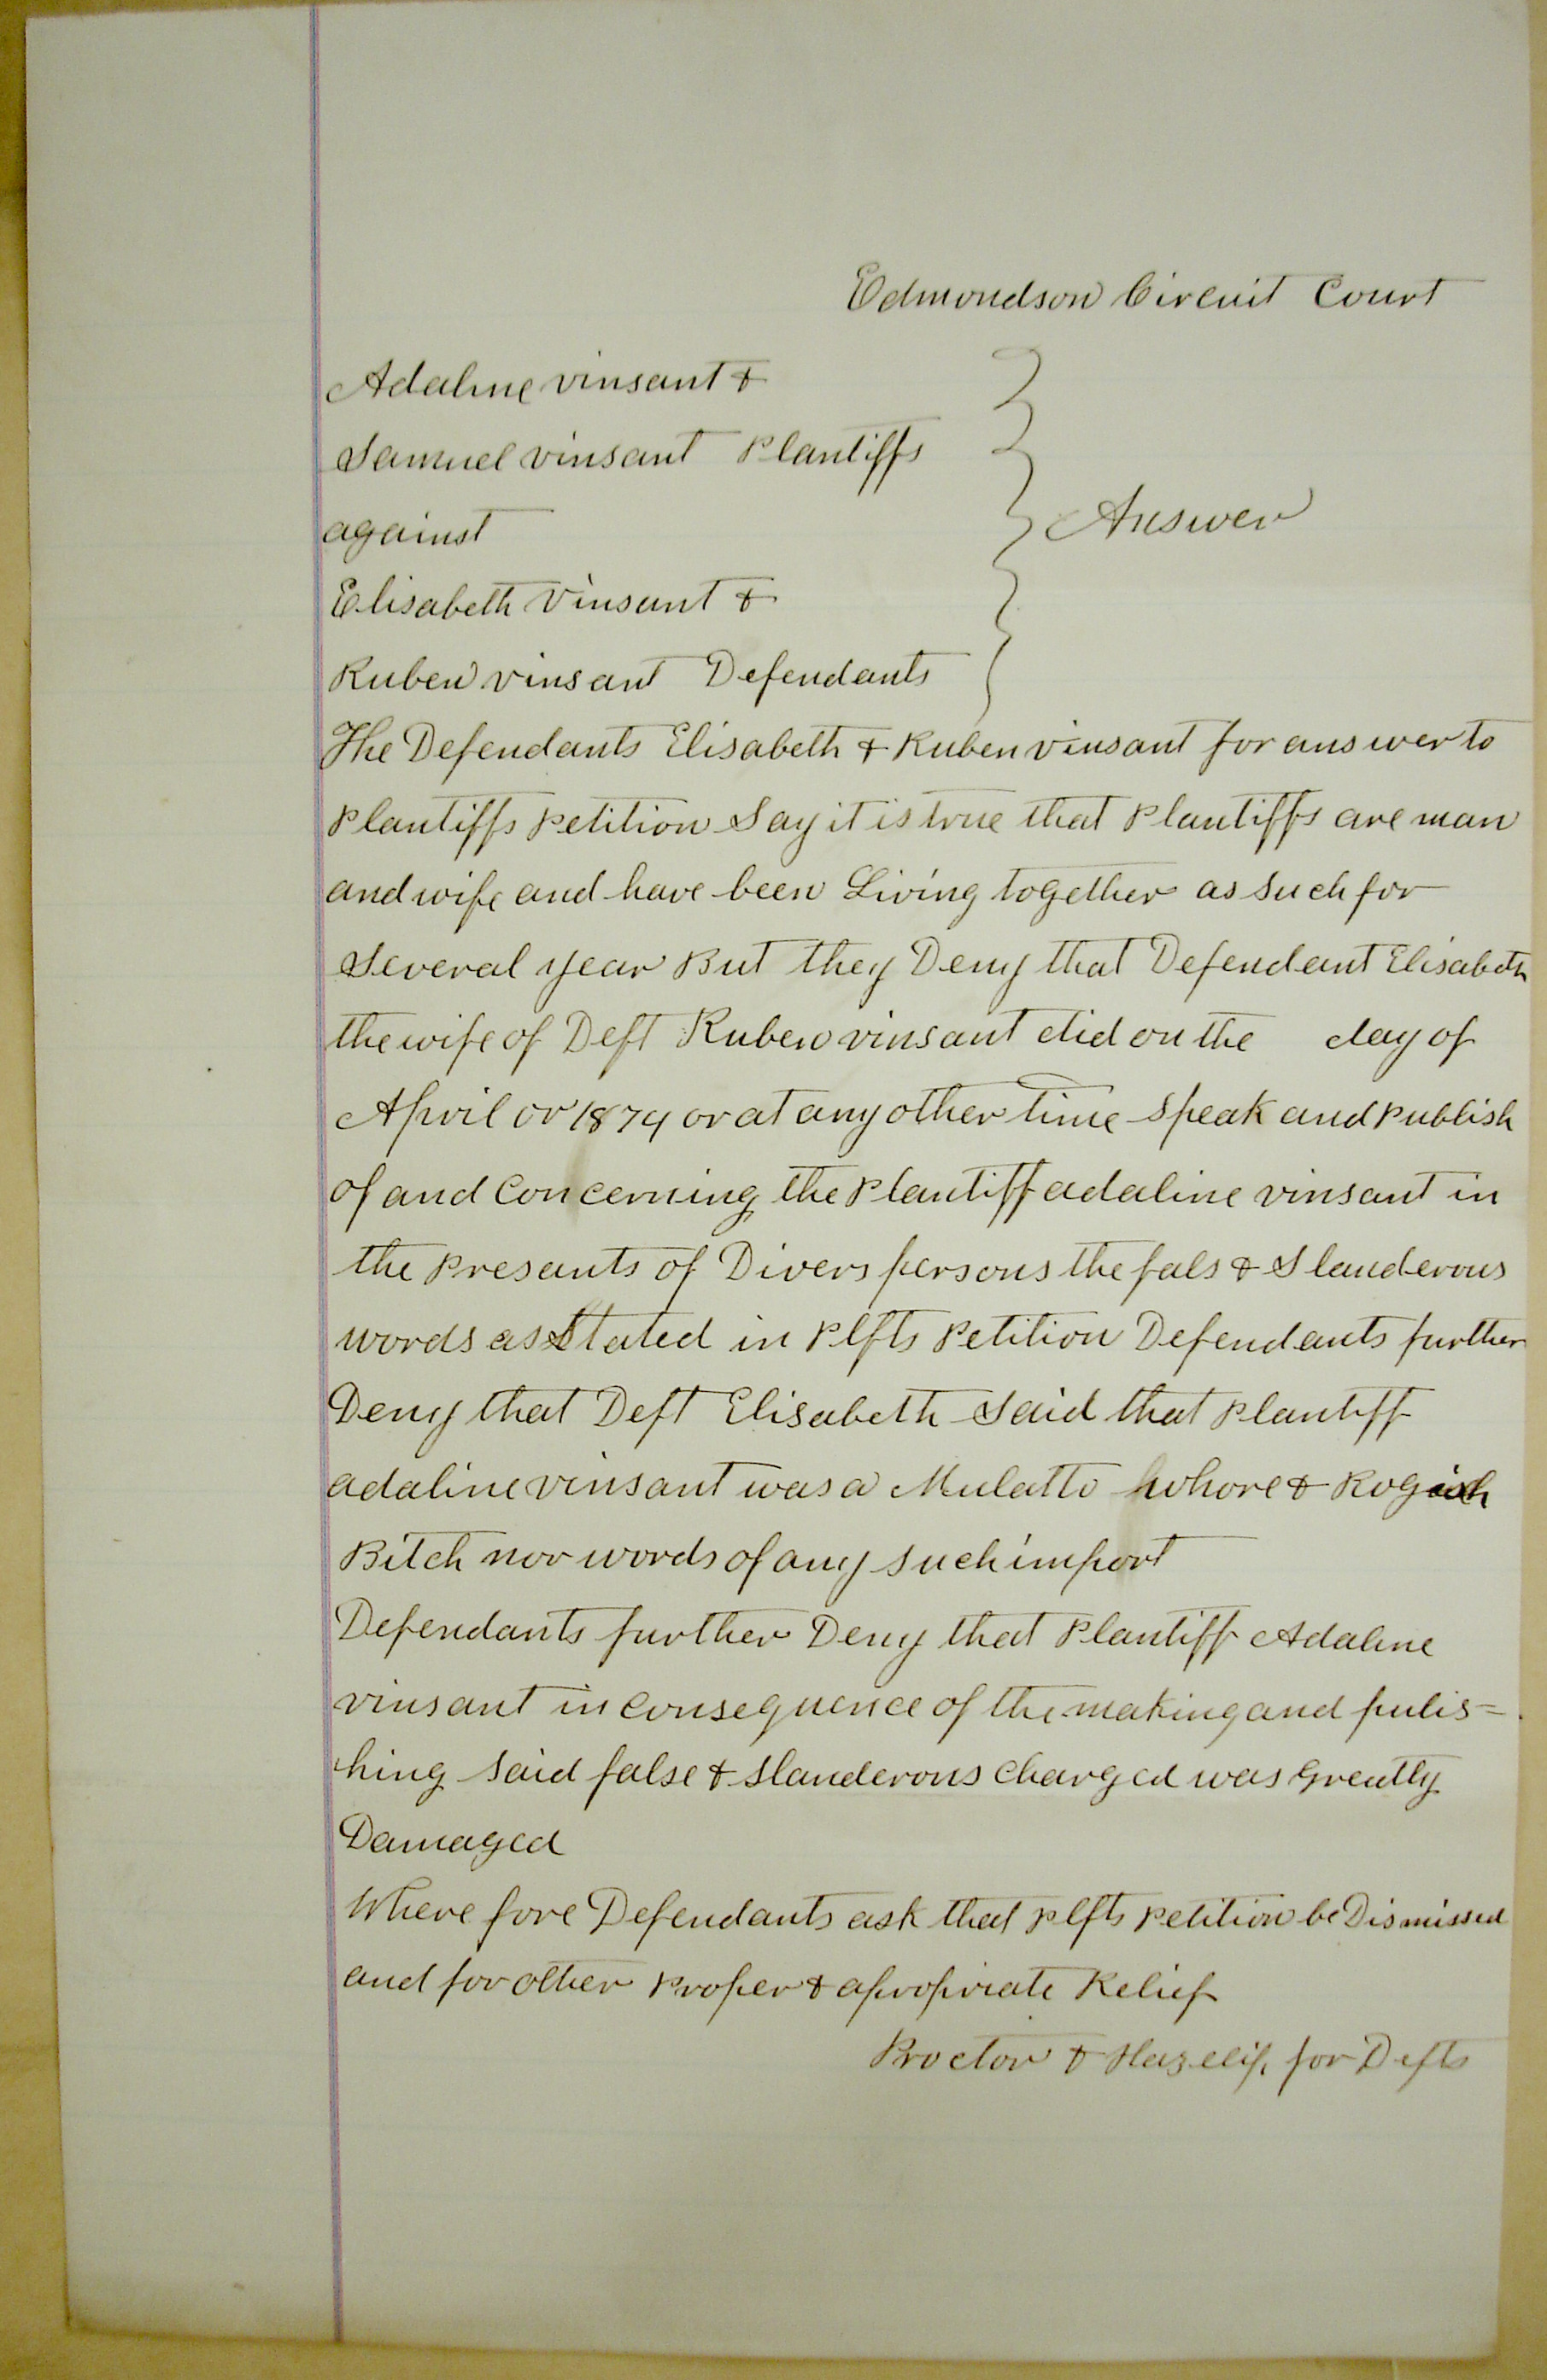 Edmondson Circuit Court
Adaline vinsant &
Samuel vinsant Plantiffs
against
Answer
Elisabeth Vinsant &
Ruben vinsant Defendants
The Defendants Elisabeth & Ruben vinsant for answer to
Plantiffs Petition Say it is true that Plantiffs are man
and wife and have been Living together as such for
several year But they Deny that Defendant Elisabeth
the wife of Deft Ruben vinsant did on the day of
April or 1874 or at any other time speak and publish
of and Concerning the Plantiff adaline vinsant in
the presants of Divers persons the fals & Slanderous
words as Stated in Plfts Petition Defendants further
Deny that Deft Elisabeth Said that Plantiff
adaline vinsant was a Mulatto whore & Rogish
Bitch nor words of any such import
Defendants further Deny that Plantiff Adaline
vinsant in consequence of the making and pulis=
hing said false & slanderous charged was greatly
Damaged
Where fore Defendants ask that Plfts Petition be Dismissed
and for other Proper & apropriate Relief
Proctor & Hazelip for Defts